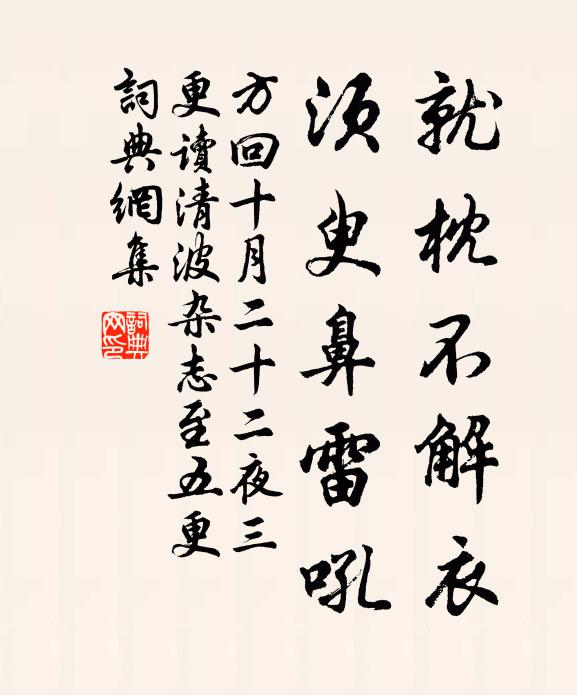 就枕不解衣
须臾鼻雷吼
方回十月二十二夜三
更读清波杂志至五更
詞典網集
詞典
网印